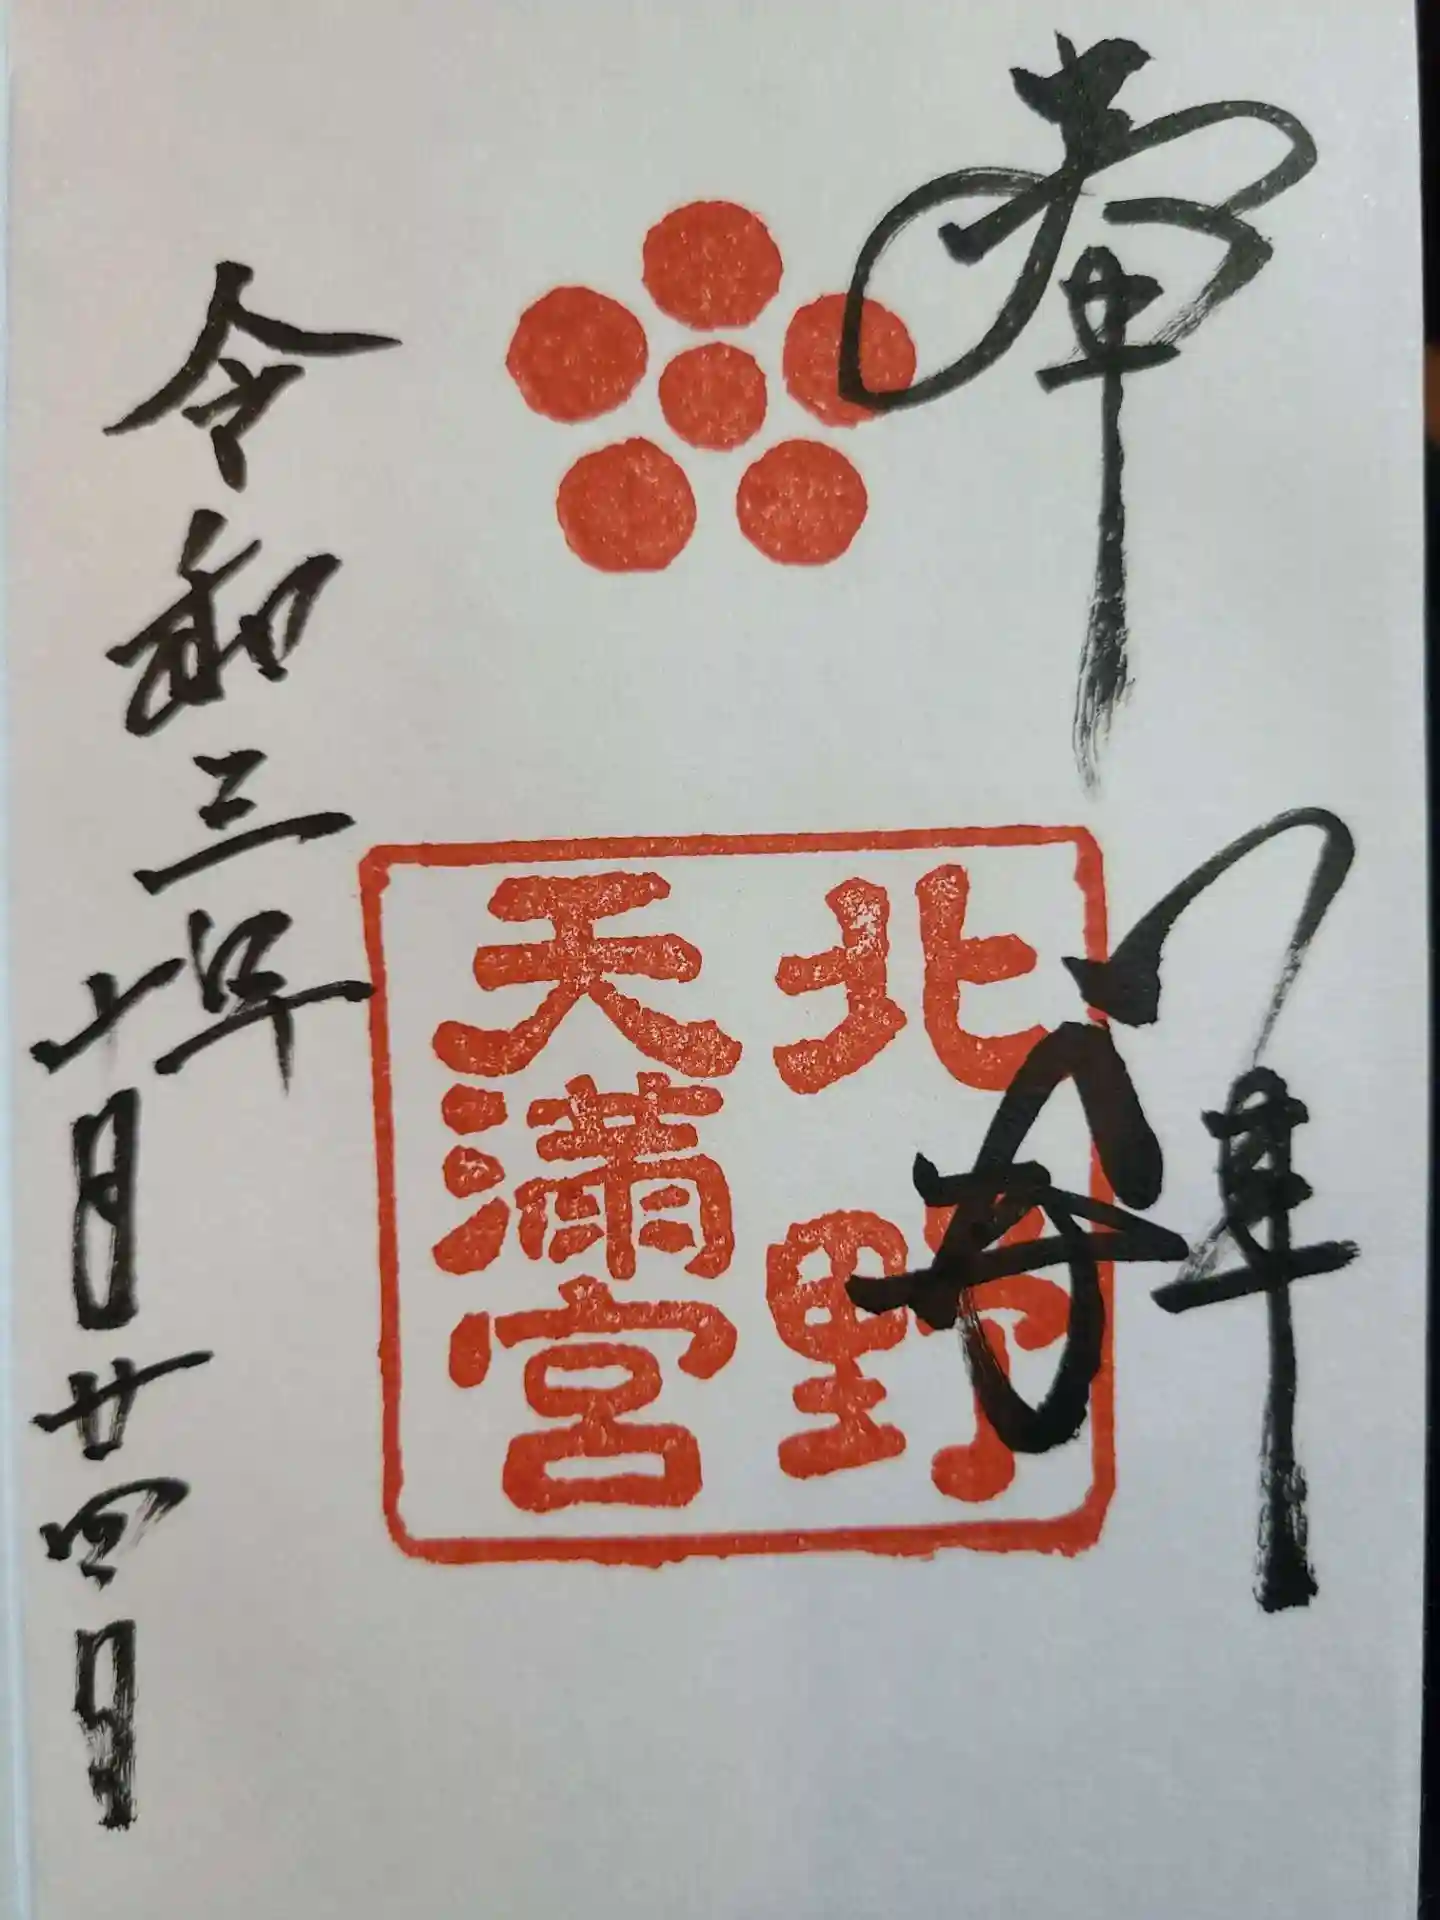 奉拝
北野
天満宮
令和三年
十月廿四日